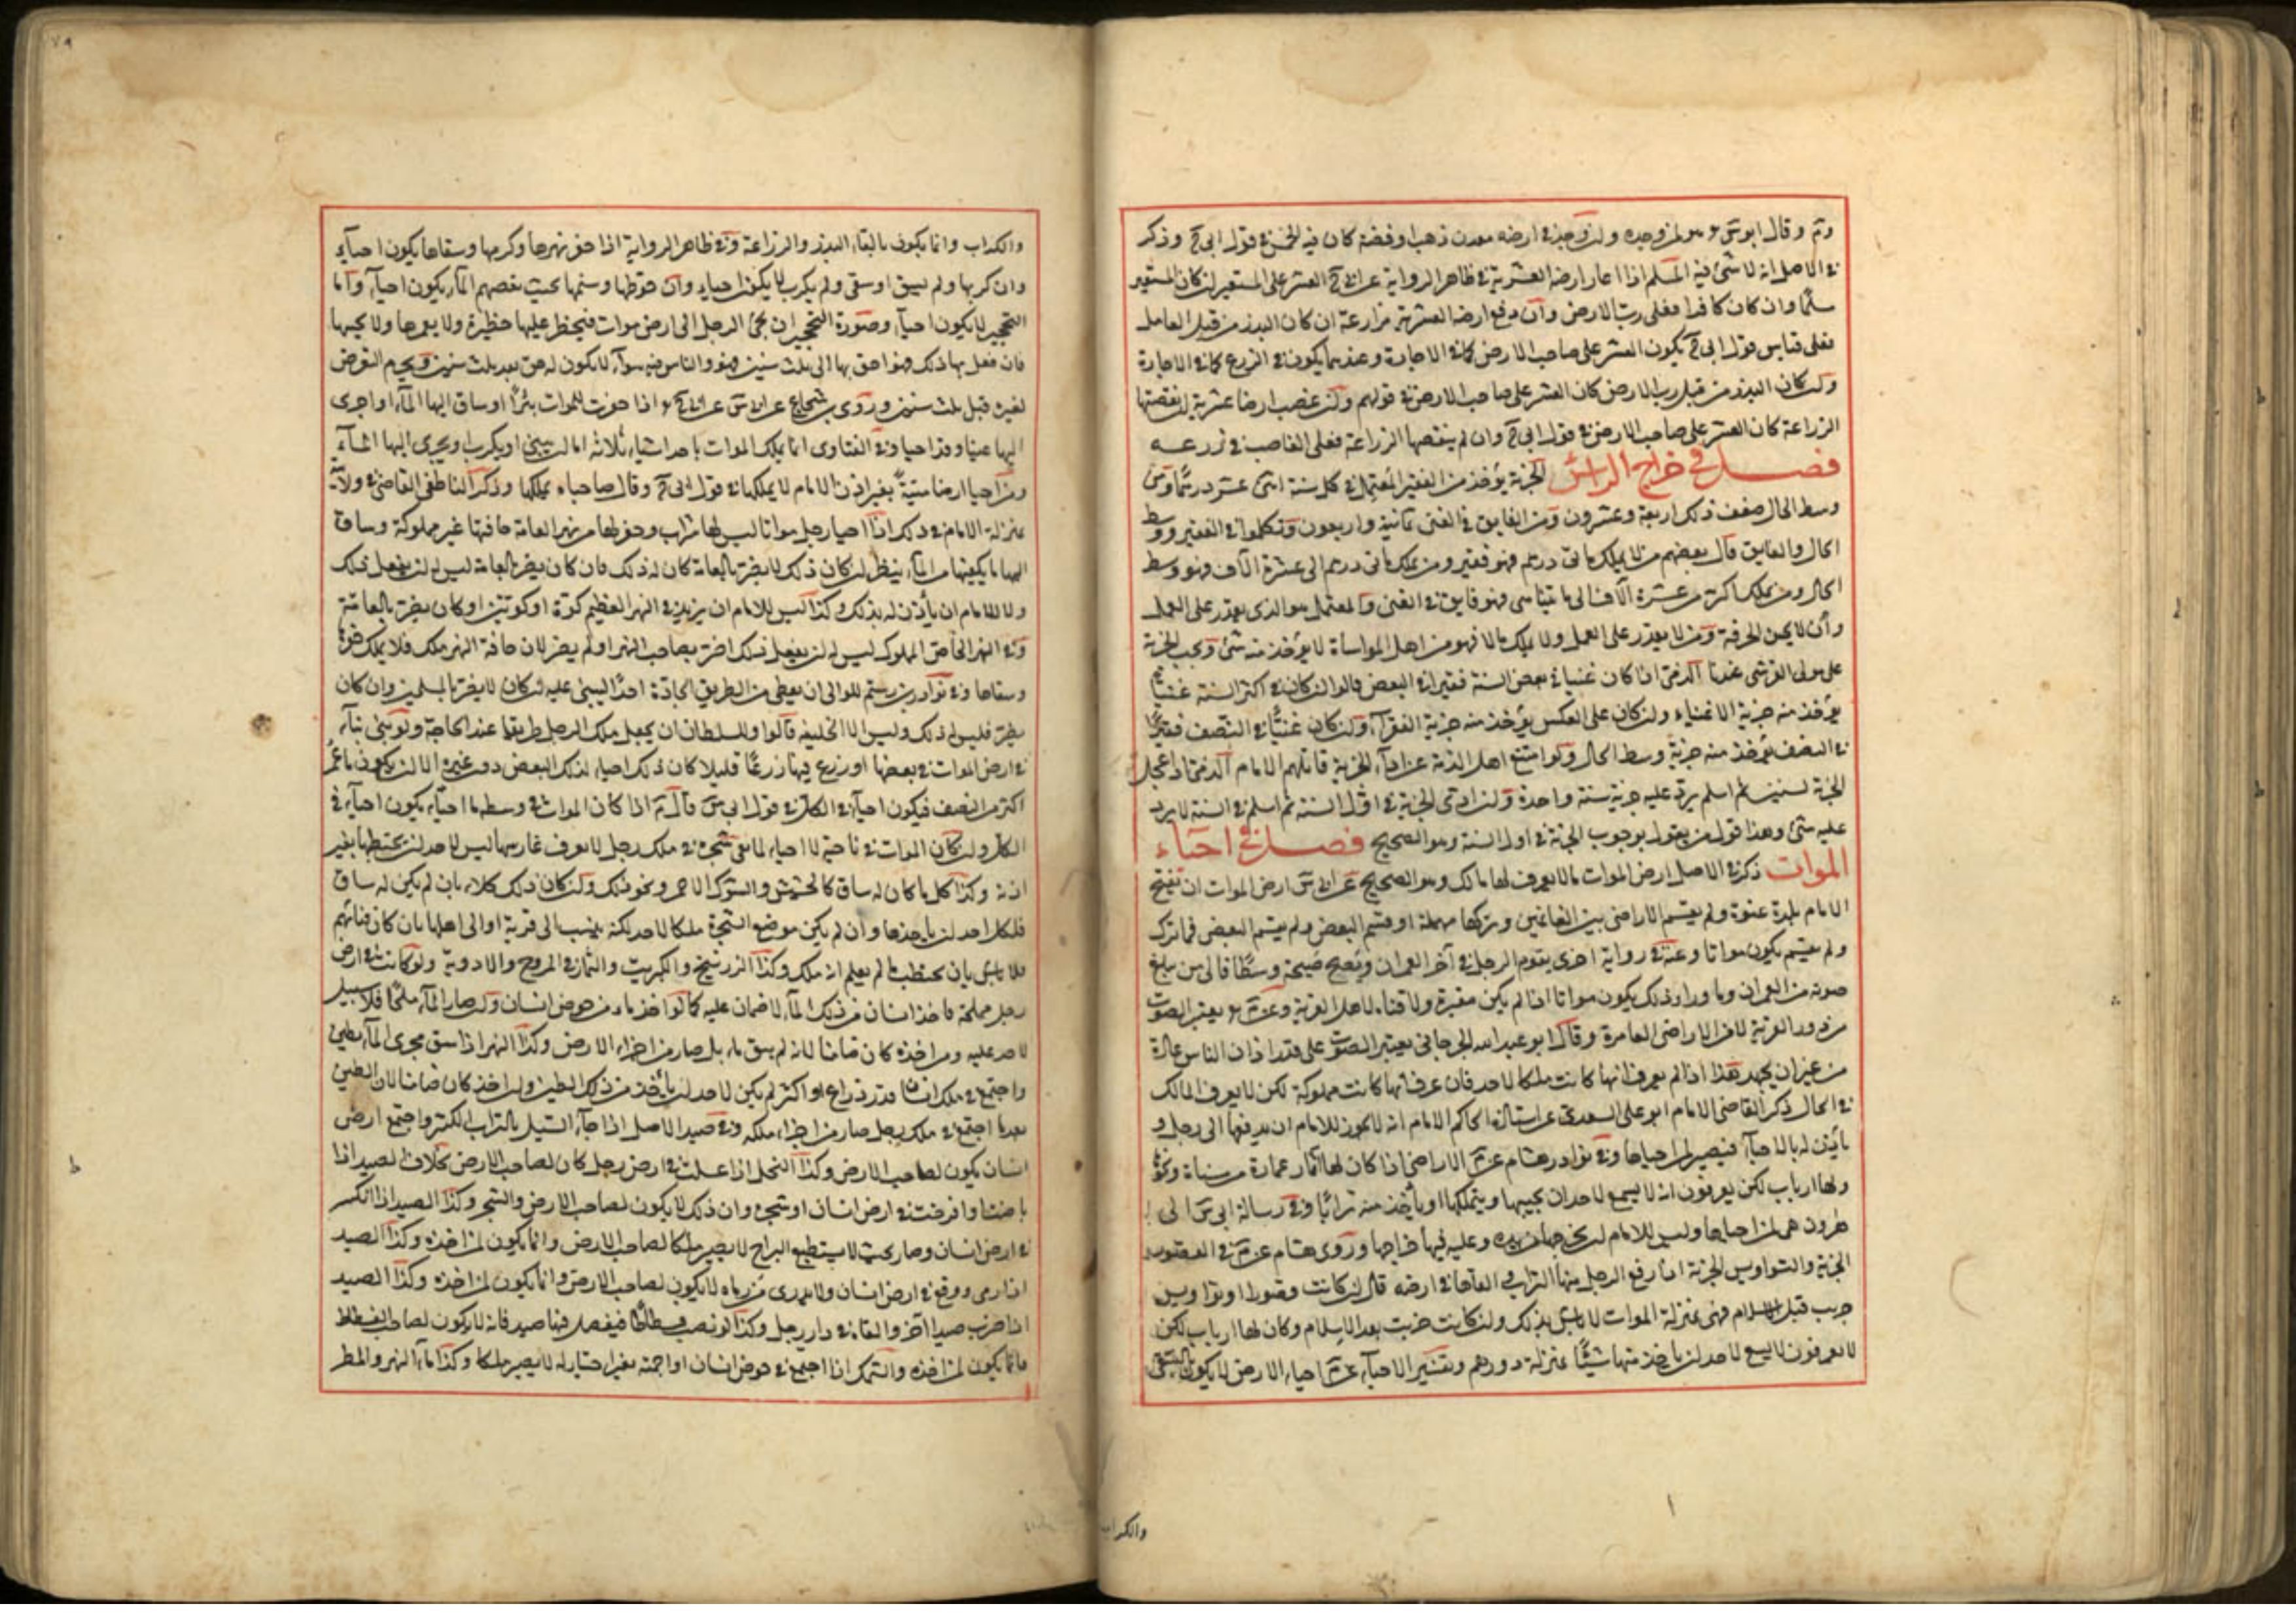 وقال ابو وهو لمن وجده ولو وجد في ارضه معدن ذهب او فضة كان فيه الخمس في قول ابي ح وذكر
في الاصل انه لا شئ فيه المسلم اذا اعار ارضه العشرية في ظاهر الرواية عن ابي ح العشر على المستعير ان كان المستعير
مسلما وان كان كافرا فعلى رب الارض وان دفع ارضه العشرية مزارعة ان كان البذر من قبل العامل
فعلى قياس قول ابي ح يكون العشر على صاحب الارض كما في الاجارة وعندهما يكون في الزرع كما في الاجارة
وان كان البذر من قبل رب الارض كان العشر على صاحب الارض في قولهم وان غصب ارضا عشرية ان نقصتها
الزراعة كان العشر على صاحب الارض في قول ابي ح وان لم ينقصها الزراعة فعلى الغاصب في زرعه
فصل في خراج الراس الجزية يؤخذ من الفقير المعتمل في كل سنة اثنى عشر درهما ومن
وسط الحال ضعف ذلك اربعة وعشرون ومن الفايق في الغنى ثمانية واربعون وتكلموا في الفقير ووسط
الحال والفايق قال بعضهم من لا يملك مائتى درهم فهو فقير ومن يملك مائتى درهم الى عشرة الآف فهو وسط
الحال ومن يملك اكثر من عشرة الآف الى ما يتناهى فهو فايق في الغنى والمعتمل هو الذى يقدر على العمل
وان لا يحسن الحرفة ومن لا يقدر على العمل ولا يملك مالا فهو من اهل المواساة لا يؤخذ منه شئ ويجب الجزية
على مولى القرشى عندنا الذمى اذا كان غنيا في بعض السنة فقيرا في البعض قالوا ان كان في اكثر السنة غنيا
يؤخذ منه جزية الاغنياء وان كان على العكس يؤخذ منه جزية الفقرآء ولو كان غنيا في النصف فقيرا
في النصف يؤخذ منه جزية وسط الحال ولو امتنع اهل الذمة عن ادآء الجزية قاتلهم الامام الذمى اذا عجل
الجزية لسنتين ثم اسلم يرد عليه جزية سنة واحدة ولو ادى الجزية في اول السنة ثم اسلم في السنة لا يرد
عليه شئ وهذا قول من يقول بوجوب الجزية في اول السنة وهو الصحيح فصل في احياء
الموات ذكر في الاصل ارض الموات ما لا يعرف لها مالك وهو الصحيح عن ابي س ارض الموات ان يفتح
الامام بلدة عنوة ولم يقسم الاراضى بين الغانمين وتركها مهملة او قسم البعض ولم يقسم البعض فما ترك
ولم يقسم يكون مواتا وعنه في رواية اخرى يقوم الرجل في آخر العمران ويصيح صيحة وسطا فالى من يبلغ
صوته من العمران وما وراء ذلك يكون مواتا اذا لم يكن مقبرة ولا فناء لاهل القرية وعن يعتبر الصوت
من دور القرية لا من الاراضى العامرة وقال ابو عبد الله الجرجانى يعتبر الصوت على قدر اذان الناس عادة
من غير ان يجهد هذا اذا لم يعرف انها كانت ملكا لاحد فان عرف انها كانت مملوكة لكن لا يعرف المالك
في الحال ذكر القاضى الامام ابو على السعدى عن استاذه الحاكم الامام انه لا يجوز للامام ان يدفعها الى رجل و
يأذن له بالاحيآء فيصير لمن احياها وفي نوادر هشام عن م الاراضى اذا كان لها آثار عمارة من مسناة ونحوه
ولها ارباب لكن يعرفون انه لا يسع لاحد ان يحييها ويتملكها او يأخذ منه ترابا وفي رسالة ابي س الى
هرون هى لمن احياها وليس للامام ان يخرجها من يده وعليه فيها خراجها وروى هشام عن م في القصور
الخربة والنواويس الخربة اذا رفع الرجل منها التراب والقاها في ارضه قال ان كانت وقصور او نواويس
خرب قبل الاسلام فهى بمنزلة الموات لا باس بذلك وان كانت خربت بعد الاسلام وكان لها ارباب لكن
لا يعرفون لا يسع لاحد ان يأخذ منها شيئا بمنزلة دورهم وتفسير الاحيآء عن م احياء الارض لا يكون بالسقى
والكراب
والكراب وانما يكون بالقاء البذر والزراعة وفي ظاهر الرواية اذا حفر نهرها وكربها وسقاها يكون احيآء
وان كربها ولم يسق او سقى ولم يكرب لا يكون احياء وان حوطها وسنمها بحيث يعصم المآء يكون احيآء واما
التحجير لا يكون احيآء وصورة التحجير ان يجئ الرجل الى ارض موات فيحظر عليها حظيرة ولا يعمرها ولا يحييها
فان فعل بها ذلك فهو احق بها الى ثلث سنين فهو والناس فيه سوآء لا يكون له حق بعد ثلث سنين ويحرم التعرض
لغيره قبل ثلث سنين وروى بن شجاع عن ابي س عن ابي ح اذا حفرت للموات بئرا او ساق اليها المآء او اجرى
اليها عينا فقد احيا وفي الفتاوى انما يملك الموات باحد اشياء ثلاثة اما ان يبنى او يكرب او يجرى اليها المآء
ومن احيا ارضا ميتة بغير اذن الامام لا يملكها في قول ابي ح وقال صاحباه يملكها وذكر الناطفى القاضى في ولايته
بمنزلة الامام في ذلك اذا احيا رجل مواتا ليس لها شرب وحفر لها من نهر العامة حافتها غير مملوكة وساق
اليها ما يكفيها من المآء ينظر ان كان ذلك لا يضر بالعامة كان له ذلك فان كان يضر بالعامة ليس له ان يفعل ذلك
ولا للامام ان يأذن له بذلك وكذا ليس للامام ان يزيد في النهر العظيم كوة او كوتين او كان يضر بالعامة
وفي النهر الخاص المملوك ليس له ان يفعل ذلك اضر بصاحب النهر او لم يضر لان حافة النهر ملك فلا يملك
وسقاها وفي نوادر بن رستم للوالى ان يعطى من الطريق الجادة احدا ليبنى عليه ان كان لا يضر بالمسلمين وان كان
يضر فليس له ذلك وليس الا الخليفة قالوا وللسلطان ان يجعل ملك الرجل طريقا عند الحاجة ولو بنى بنآء
في ارض الموات في بعضها او زرع فيها زرعا قليلا كان ذلك احياء لذلك البعض دون غيره الا ان يكون ما عمر
اكثر من النصف فيكون احيآء في الكل في قول ابي س قال م اذا كان الموات في وسط ما احياه يكون احيآء في
الكل وان كان الموات في ناحية لا احياء لما بقى شجرة في ملك رجل لا يعرف غارسها ليس لاحد ان يحتطبها بغير
اذنه وكذا كل ما كان له ساق كالحشيش والشوك الاحمر ونحو ذلك وان كان ذلك كلاء بان لم يكن له ساق
فلكل احد ان يأخذها وان لم يكن موضع الشجرة ملكا لاحد لكنه ينسب الى قرية او الى اهلها بان كان فنائهم
فلا بأس بان يحتطب ما لم يعلم انه ملك وكذا الزرنيخ والكبريت والثمار في المروج والاودية ولو كانت في ارض
رجل مملحة فاخذ انسان من ذلك المآء لا ضمان عليه كما لو اخذ ماء من حوض انسان ولو صار المآء ملحا فلا سبيل
لاحد عليه ومن اخذه كان ضامنا لانه لم يبق ماء بل صار من اجزاء الارض وكذا النهر اذا سق مجرى المآء بطين
واجتمع في ملك انسان قدر ذراع او اكثر لم يكن لاحد ان يأخذ من ذلك الطين ولو اخذ كان ضامنا لان الطين
بعد ما اجتمع في ملك رجل صار من اجزاء ملكه وفي صيد الاصل اذا جاء السيل بالتراب الكثير واجتمع ارض
انسان يكون لصاحب الارض وكذا النحل اذا عسلت في ارض رجل كان لصاحب الارض بخلاف الصيد اذا
باضت او افرخت في ارض انسان او شجرة وان ذلك لا يكون لصاحب الارض والشجر وكذا الصيد اذا انكسر
في ارض انسان وصار بحيث لا يستطيع البراح لا يصير ملكا لصاحب الارض وانما يكون لمن اخذه وكذا الصيد
اذا رمى ووقع في ارض انسان ولا يدرى من رماه لا يكون لصاحب الارض وانما يكون لمن اخذه وكذا الصيد
اذا ضرب صيدا آخر والقاه في دار رجل وكذا لو نصب فسطاطا فيعقل فيها صيد فانه لا يكون لصاحب الفسطاط
وانما يكون لمن اخذه والسمك اذا اجتمع في حوض انسان او اجمة بغير احتياله لا يصير ملكا وكذا مآء النهر والمطر